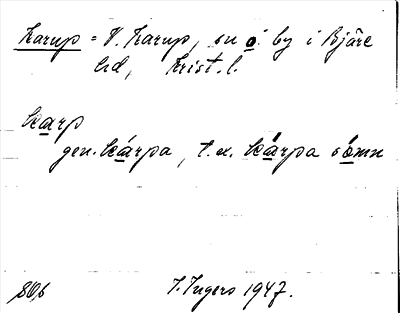 Karup = V. Karup, sn o. by i Bjäre
hd, Krist. l.
karp
gen. kárpa, t. ex. kárpa sómn
I. Ingers 1947.